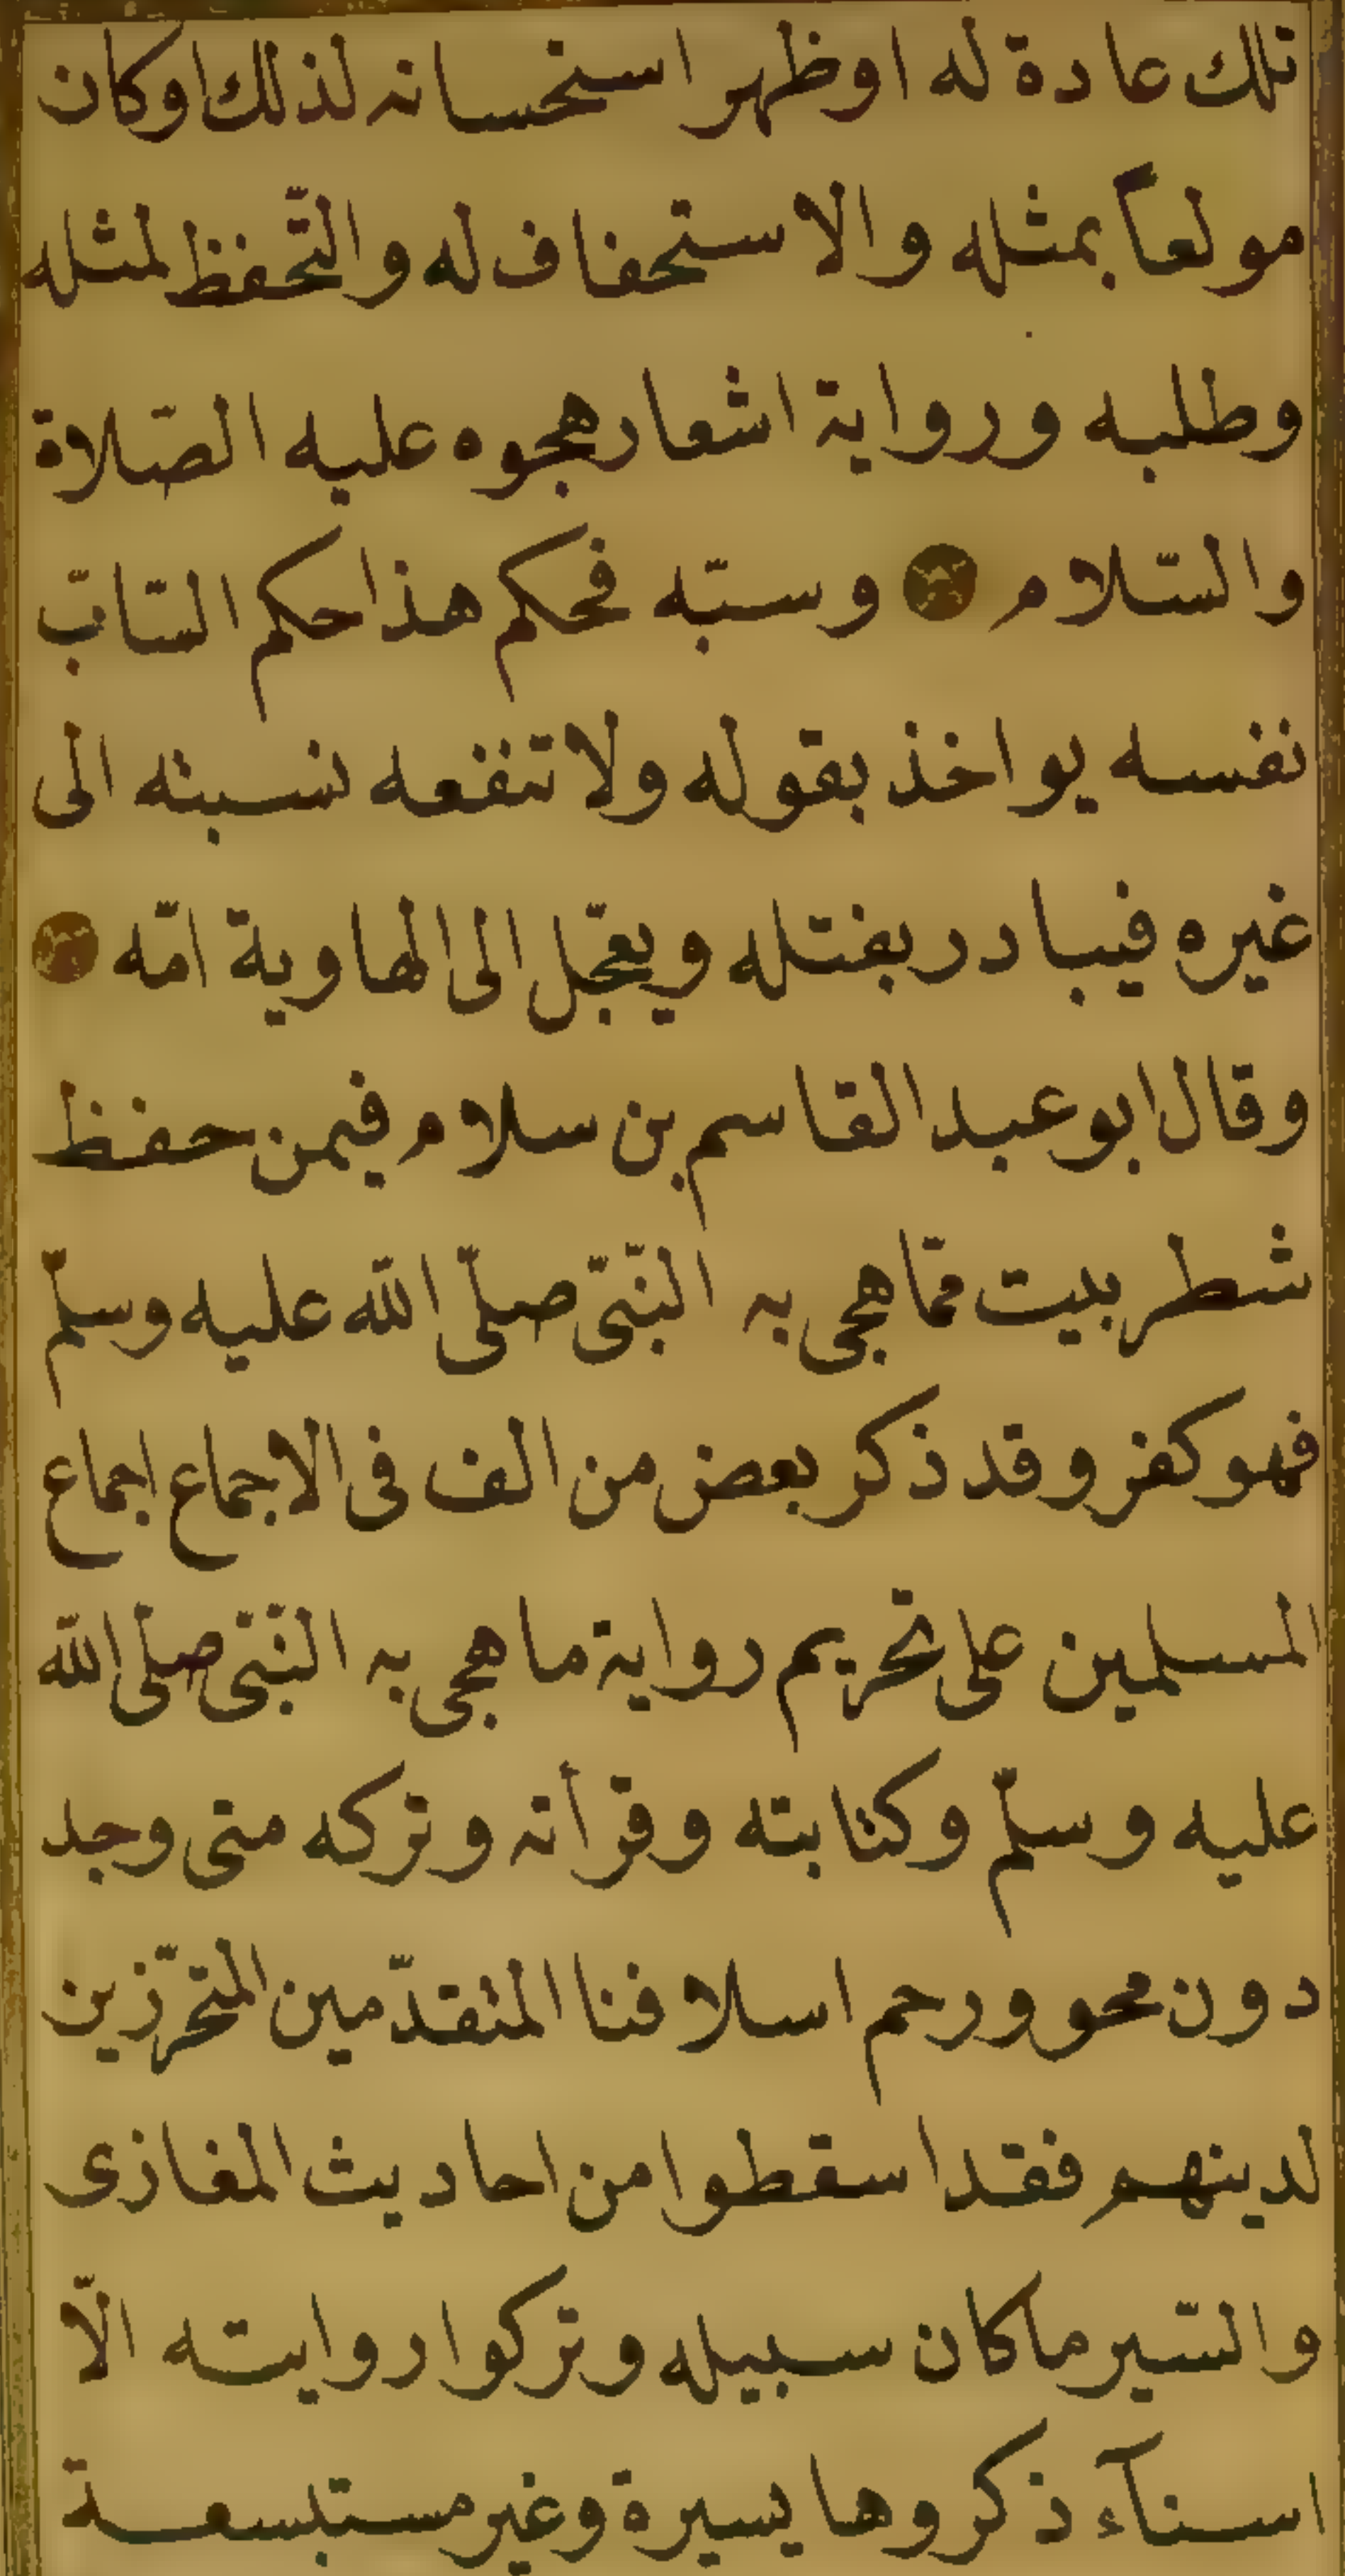 تلك عادة له اوظهر استحسانه لذلك اوكان
مولعاً بمثله والاستحفاف له والتّحفظ لمثله
وطلبه ورواية اشعار هجوه عليه الصّلاة
والسّلام وسبّه فحكم هذا حكم السّابّ
نفسه يواخذ بقوله ولا تنفعه نسبته الى
غيره فيبادر بقتله ويعجّل الى الهاوية امّه
وقال ابو عبد القاسم بن سلام فيمن حفظ
شطر بيت ممّا هجى به النّبىّ صلّى الله عليه وسلّم
فهو كفر وقد ذكر بعض من الف فى الاجماع اجماع
المسلمين على تحريم رواية ما هجى به النّبىّ صلّى الله
عليه وسلّم وكتابته وقرأته وتركه متى وجد
دون محو ورحم اسلافنا المتقدّمين المتحرّزين
لدينهم فقد اسقطوا من احاديث المغازى
والسّير ما كان سبيله وتركوا روايته الّا
اسنآء ذكروها يسيرة وغير مستبسعة